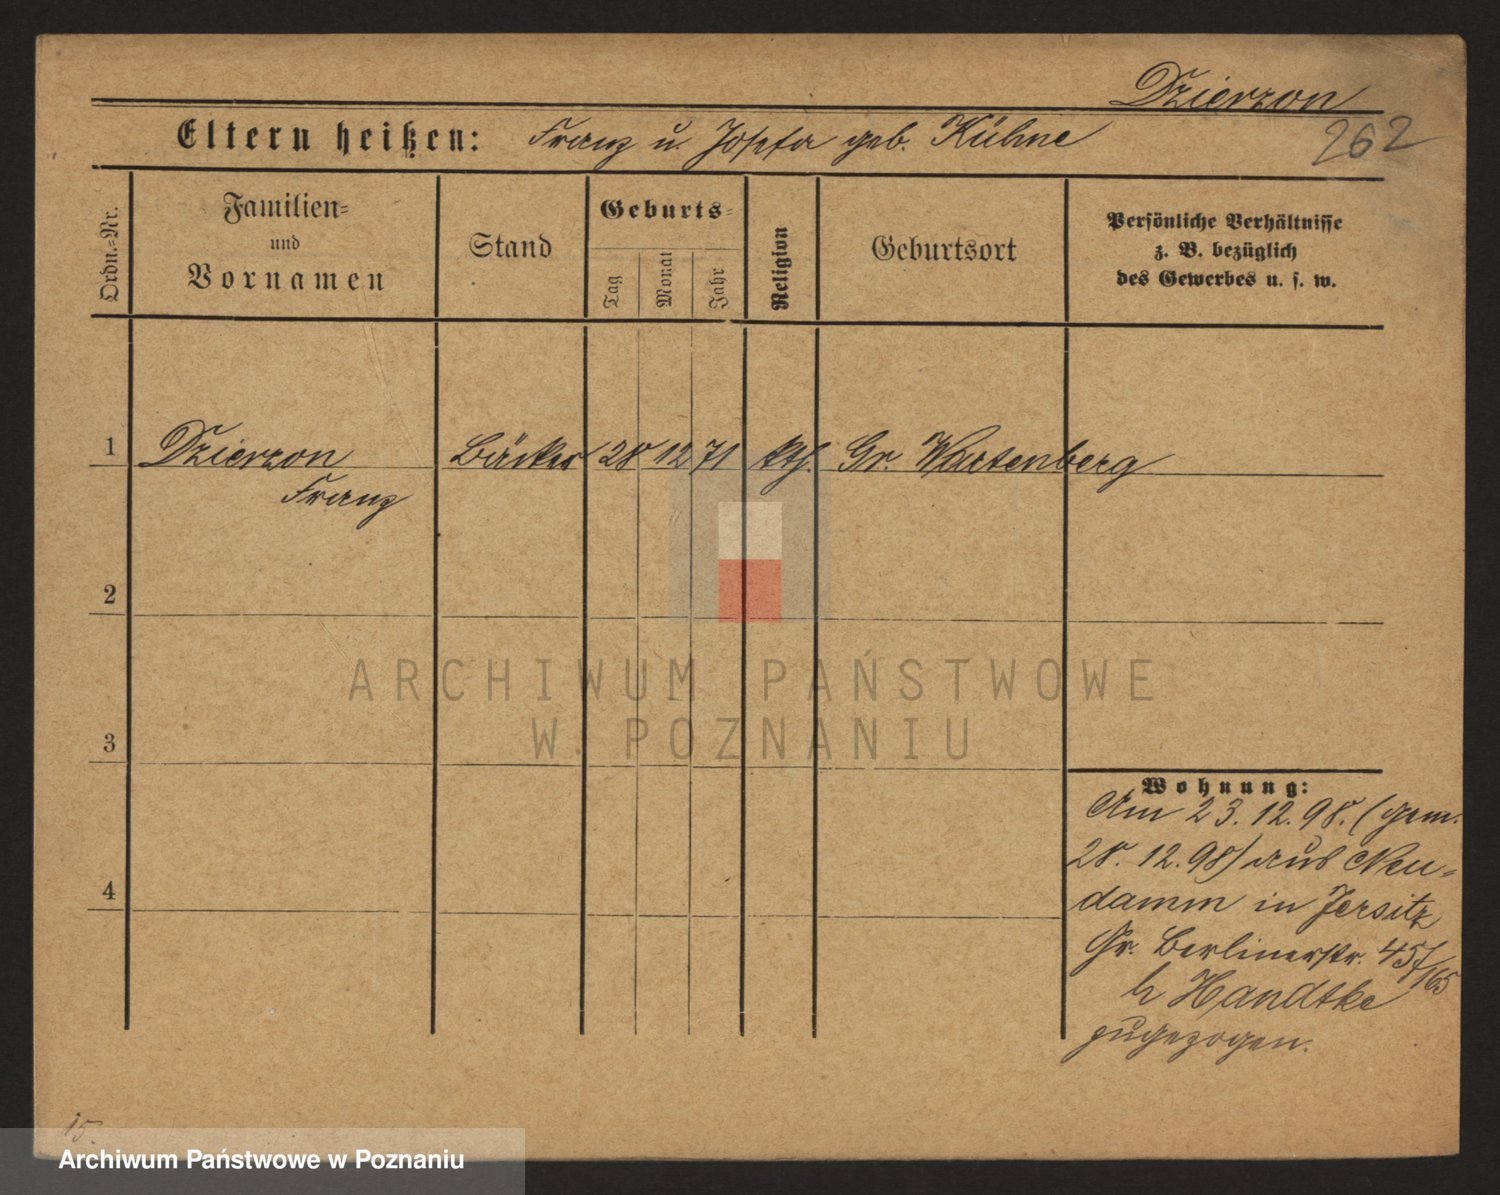 Dzierzon
262
Eltern heißen: Franz u. Josefa geb. Kühne
Ordn.-Nr.
Familien-
und
Vornamen
Stand
Geburts-
Tag
Monat
Jahr
Religion
Geburtsort
Persönliche Verhältnisse
z. B. bezüglich
des Gewerbes u. s. w.
1 Dzierzon Bäcker 28 12 71 kth. Gr. Wartenberg
Franz
2
3
4
ARCHIWUM PAŃSTWOWE
W POZNANIU
Wohnung:
Am 23.12.98. (gem.
28.12.98) aus Neu-
damm in Jersitz
Gr. Berlinerstr. 45/165
b Handtke
zugezogen.
15.
Archiwum Państwowe w Poznaniu